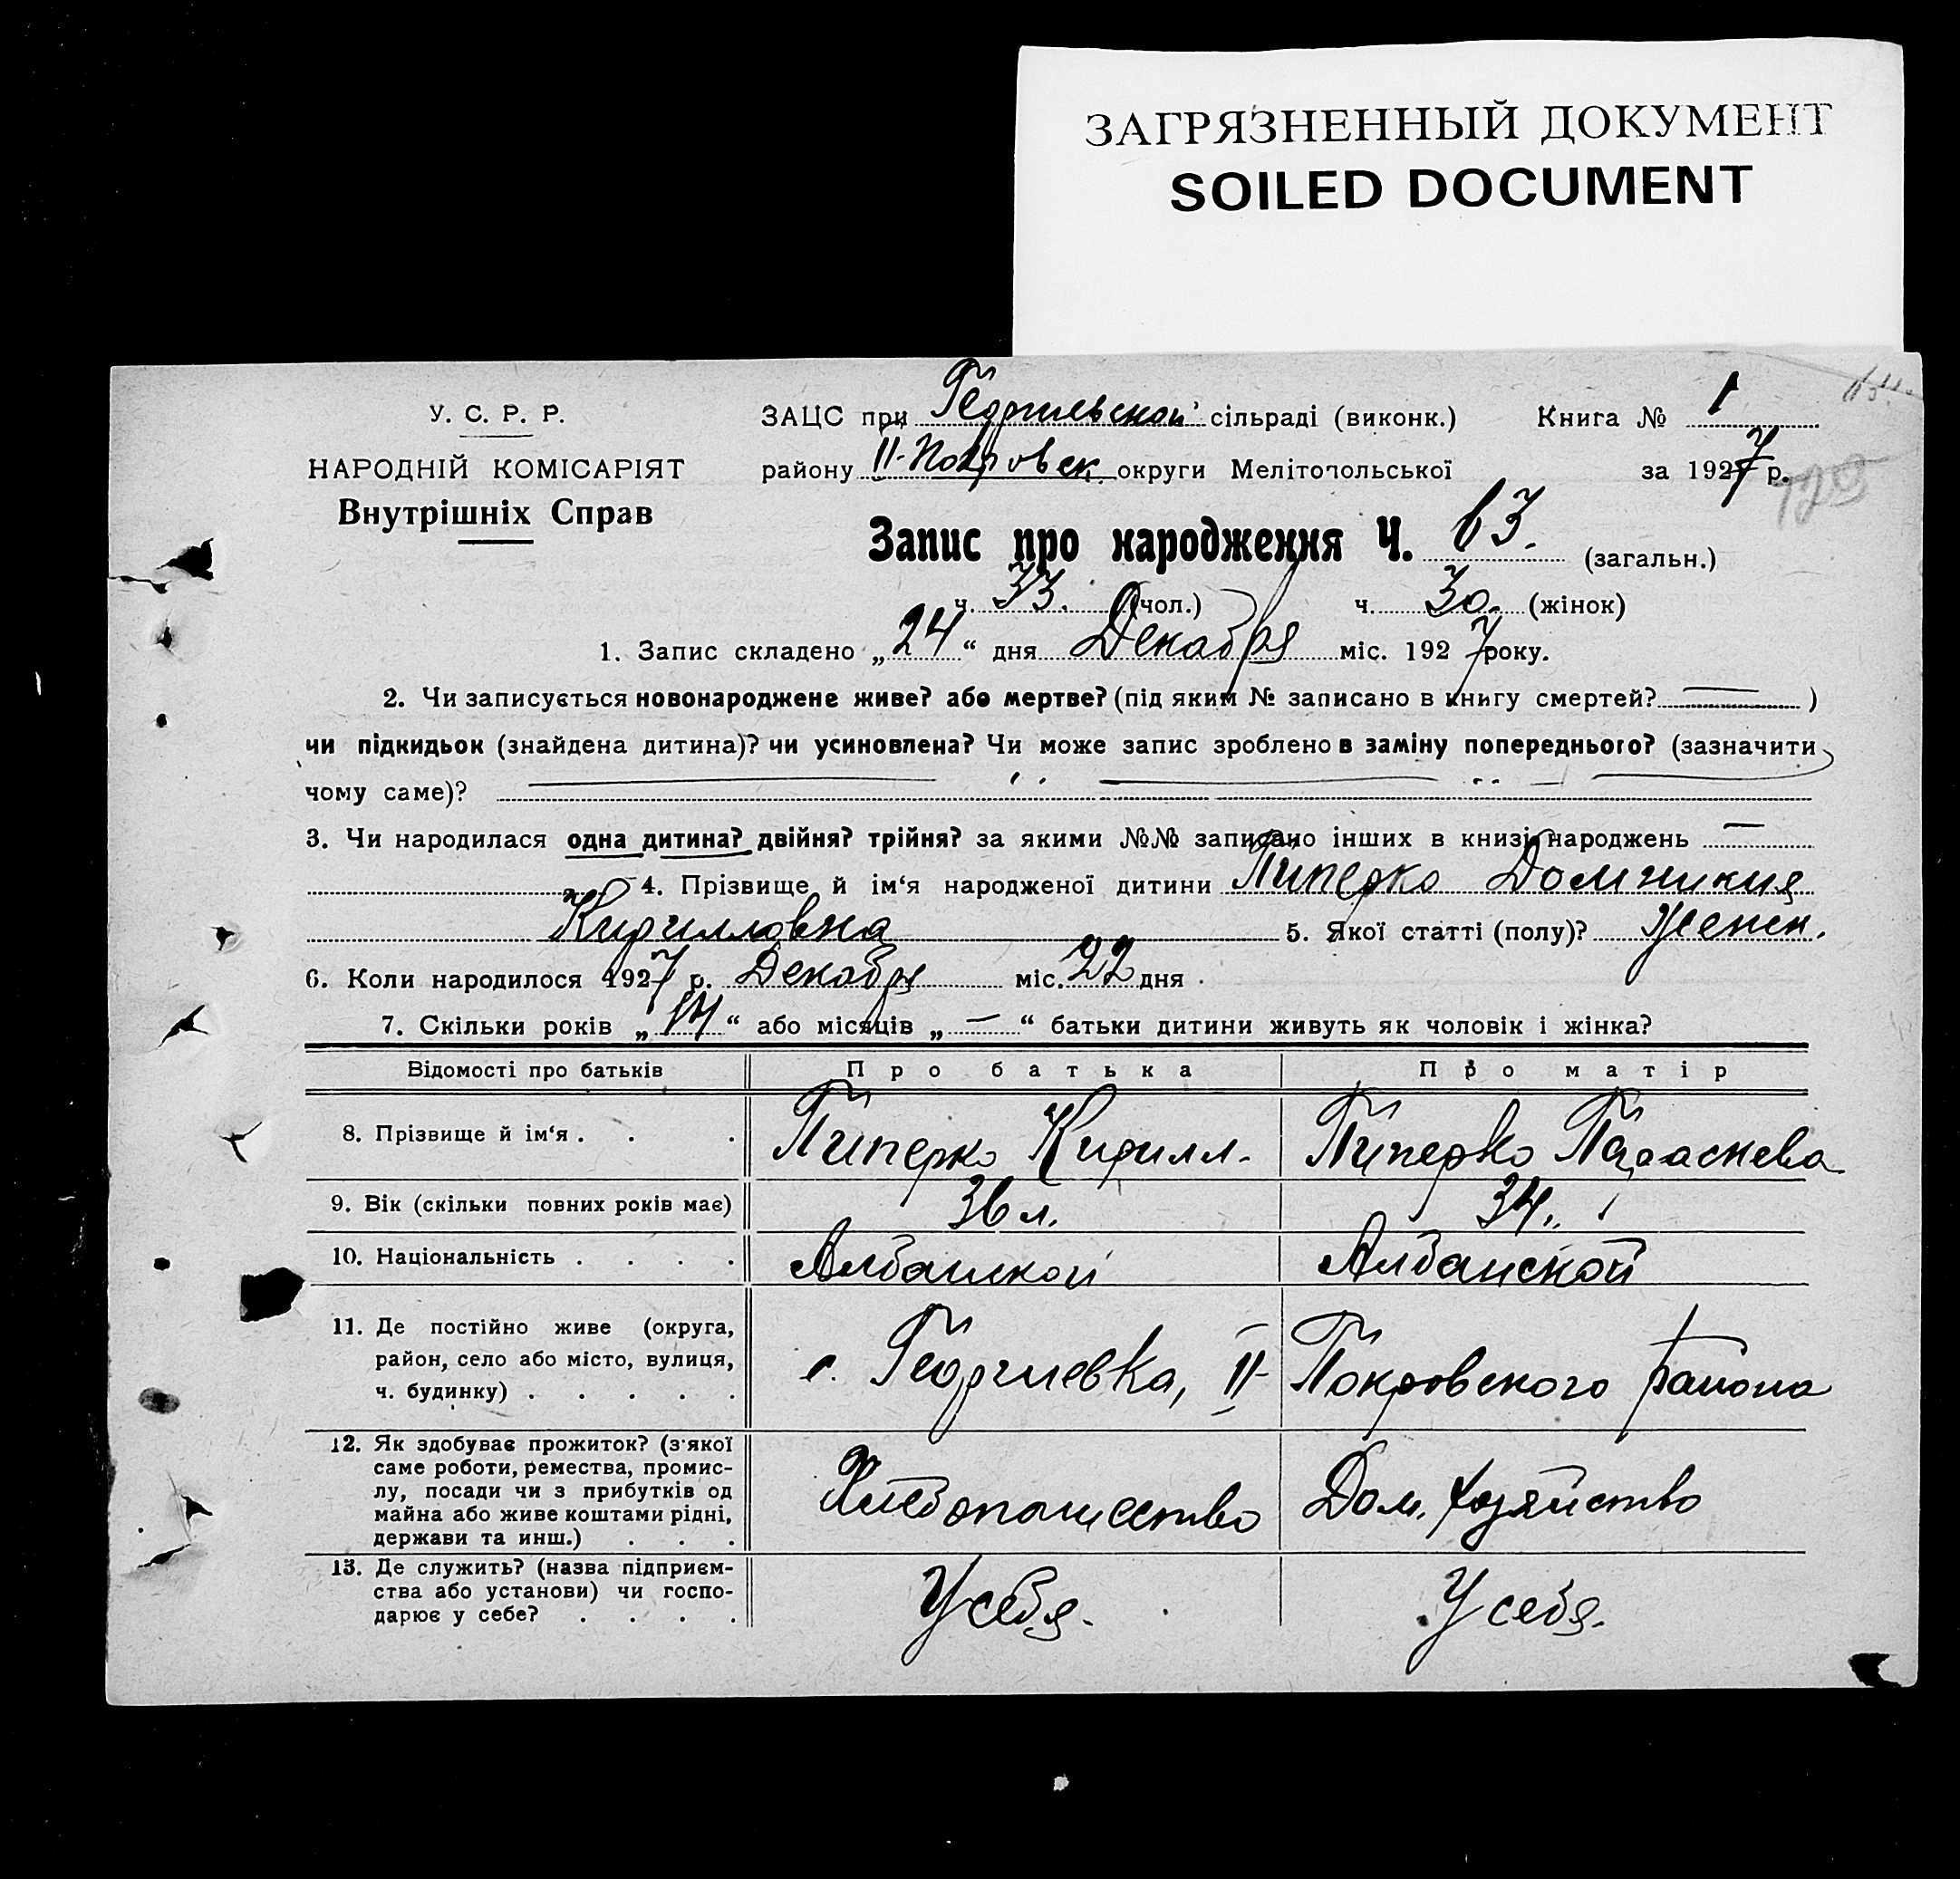 ЗАГРЯЗНЕННЫЙ ДОКУМЕНТ
SOILED DOCUMENT
У. С. Р. Р.
НАРОДНІЙ КОМІСАРІЯТ
Внутрішніх Справ
ЗАЦС при Георгиевской сільраді (виконк.) Книга № 1
району II-Покровск. округи Мелітопольської за 1927 р.
Запис про народження Ч. 63. (загальн.)
ч. 33. (чол.) ч. 30. (жінок)
1. Запис складено „24“ дня Декабря міс. 1927 року.
2. Чи записується новонароджене живе? або мертве? (під яким № записано в книгу смертей? — )
чи підкидьок (знайдена дитина)? чи усиновлена? Чи може запис зроблено в заміну попереднього? (зазначити
чому саме)?
3. Чи народилася одна дитина? двійня? трійня? за якими №№ записано інших в книзі народжень —
4. Прізвище й ім‘я народженої дитини Пиперко Домникия
Кирилловна 5. Якої статті (полу)? Женск.
6. Коли народилося 1927 р. Декабря міс. 22 дня
7. Скільки років „14“ або місяців „—“ батьки дитини живуть як чоловік і жінка?
Відомості про батьків Про батька Про матір
8. Прізвище й ім‘я . . . Пиперко Кирилл. Пиперко Параскева
9. Вік (скільки повних років має) 36 л. 34 л.
10. Національність . . . . Албанской Албанской
11. Де постійно живе (округа,
район, село або місто, вулиця,
ч. будинку) . . . . .
с. Георгиевка, II- Покровского района
12. Як здобуває прожиток? (з‘якої
саме роботи, ремества, промис-
лу, посади чи з прибутків од
майна або живе коштами рідні,
держави та инш.) . . .
Хлебопашество Дом. хозяйство
13. Де служить? (назва підприєм-
ства або установи) чи госпо-
дарює у себе? . . . .
У себя. У себя.